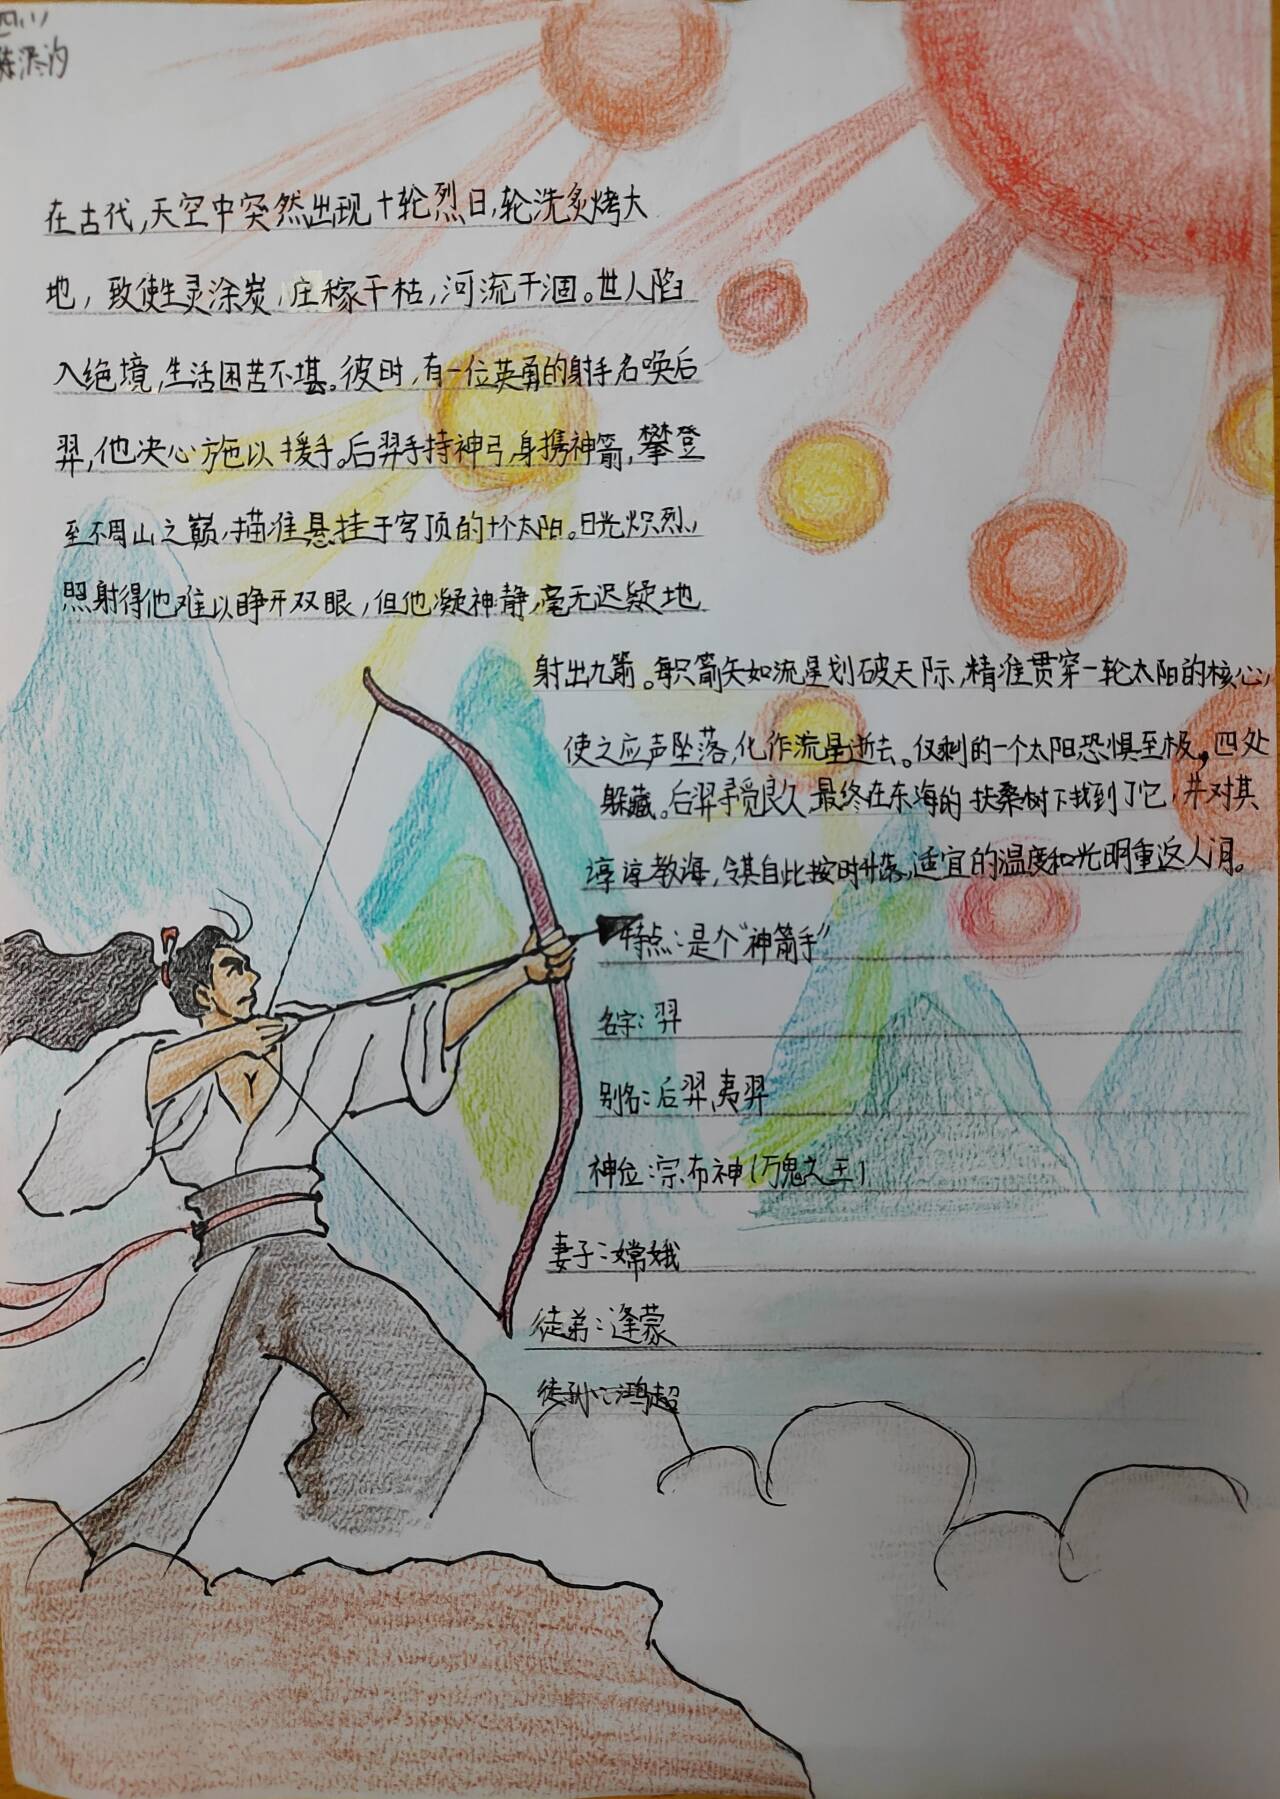 四、1
在古代,天空中突然出现十轮烈日,轮洗炙烤大
地,致使生灵涂炭,庄稼干枯,河流干涸。世人陷
入绝境,生活困苦不堪。彼时,有一位英勇的射手名唤后
羿,他决心施以援手。后羿手持神弓,身携神箭,攀登
至不周山之巅,描准悬挂于穹顶的十个太阳。日光炽烈,
照射得他难以睁开双眼,但他凝神静,毫无迟疑地
射出九箭。每只箭矢如流星划破天际,精准贯穿一轮太阳的核心,
使之应声坠落,化作流星逝去。仅剩的一个太阳恐惧至极,四处
躲藏。后羿寻觅良久,最终在东海的扶桑树下找到了它,并对其
谆谆教海,令其自此按时升落,适宜的温度和光明重返人间。
特点:是个"神箭手"
名字:羿
别名:后羿,夷羿
神位:宗布神(万鬼之王)
妻子:嫦娥
徒弟:逢蒙
徒孙:鸿超